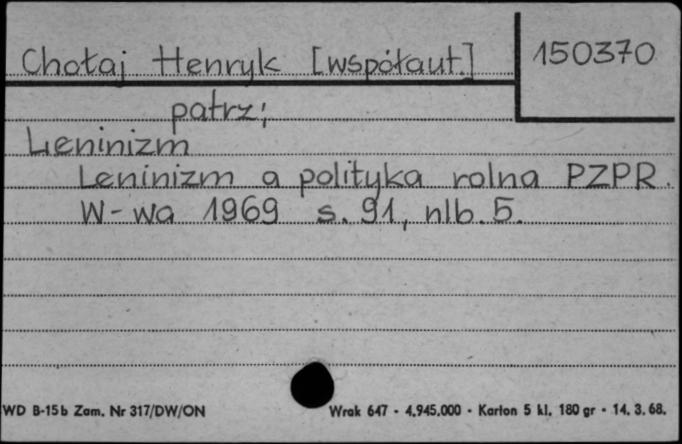 Chołaj Henryk [współaut.]
150370
patrz;
Leninizm
Leninizm a polityka rolna PZPR.
W-wa 1969 s. 91, nlb. 5.
WD B-15b Zam. Nr 317/DW/ON
Wrak 647 - 4.945.000 - Karton 5 kl. 180 gr - 14. 3. 68.